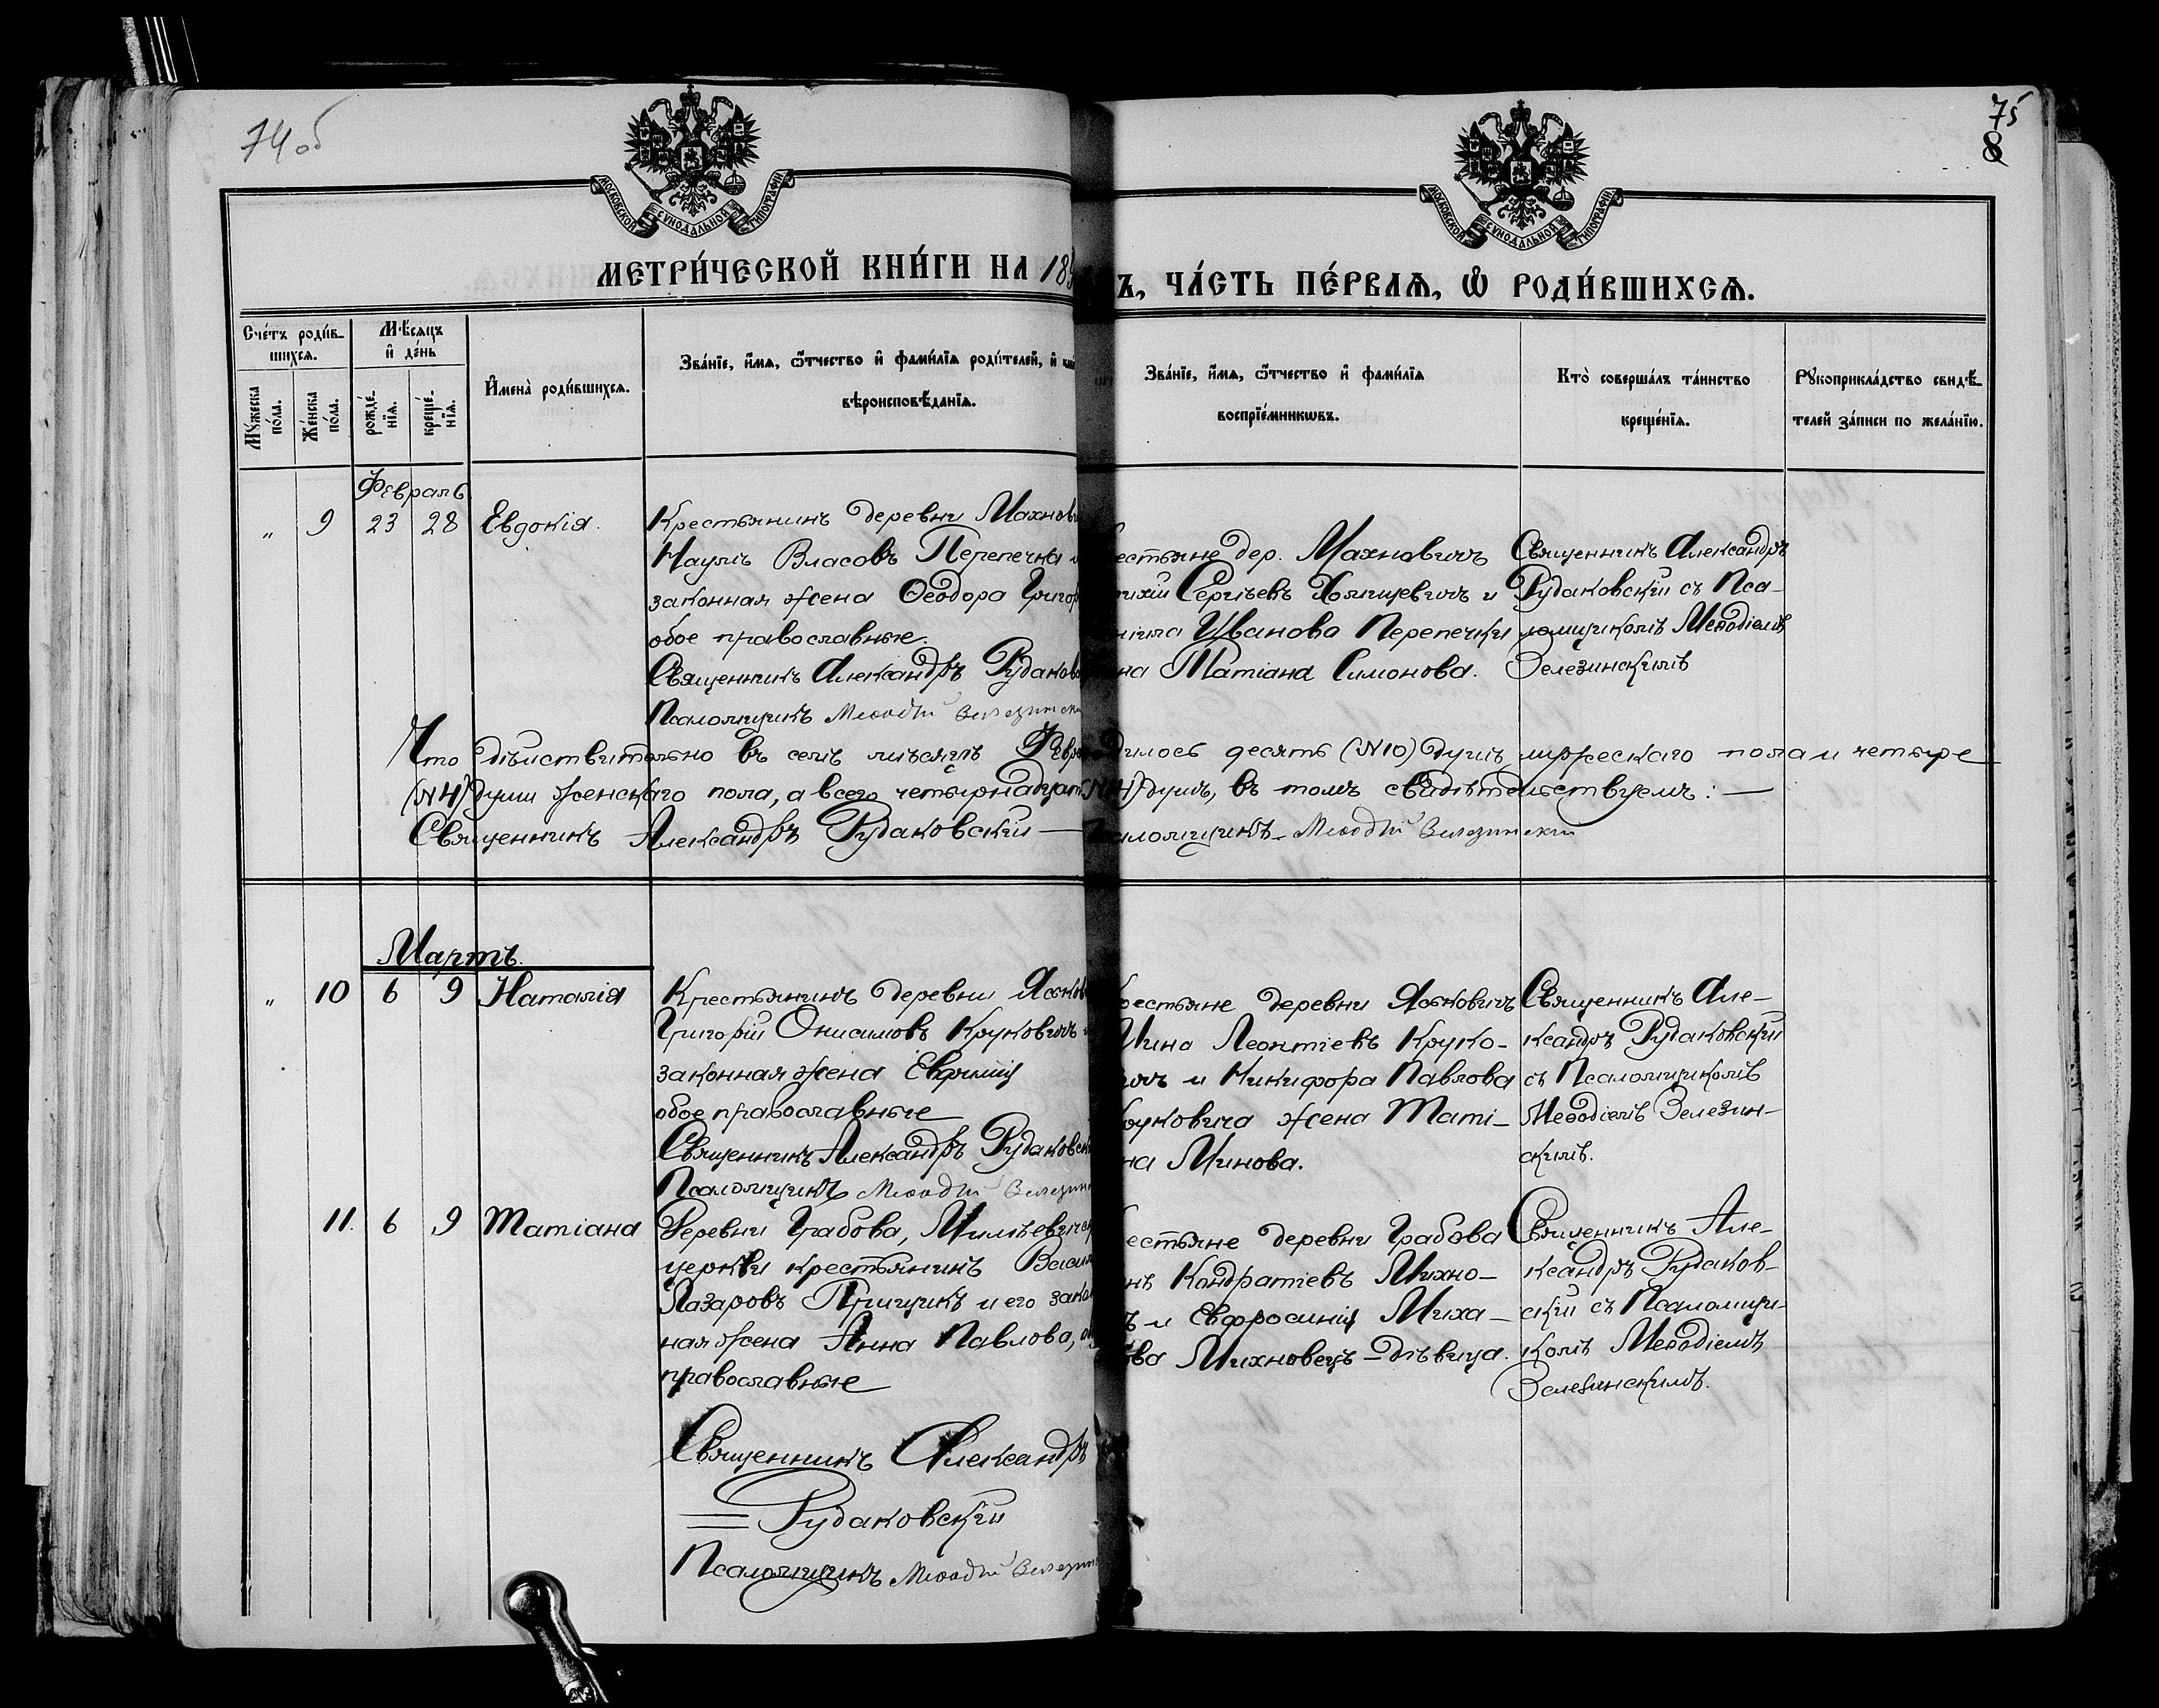 74 об
75
8
МОСКОВСКОЙ СѴНОДАЛЬНОЙ ТИПОГРАФІИ
МОСКОВСКОЙ СѴНОДАЛЬНОЙ ТИПОГРАФІИ
МЕТРИ́ЧЕСКОЙ КНИ́ГИ НА 18
Ъ, ЧА́СТЬ ПЕ́РВАѦ, Ѡ҆ РОДИ́ВШИХСѦ.
Сче́тъ роди́в-
шихсѧ.
Мꙋ́жеска по́ла.
Же́нска по́ла.
Мѣ́сѧцъ
и҆ де́нь
рожде́-
нїѧ.
креще́-
нїѧ.
И҆мена̀ роди́вшихсѧ.
Зва́нїе, и҆́мѧ, ѻ҆́тчество и҆ фами́лїѧ роди́телей, и҆
вѣроисповѣ́данїѧ.
Зва́нїе, и҆́мѧ, ѻ҆́тчество и҆ фами́лїѧ
воспрїе́мникѡвъ.
Кто̀ соверша́лъ та́инство
креще́нїѧ.
Рꙋкоприкла́дство свидѣ́-
телей за́писи по жела́нїю.
Февраль
„ 9 23 28 Евдокія.
Крестьянинъ деревни Махнови
Наумъ Власовъ Перепечка и
законная жена Ѳеодора Григор
обое православные.
Священникъ Александръ Рудаков
Псаломщикъ Меѳодій Зелезински
естьяне дер. Махновичъ
тихій Сергіевъ Хомицевичъ и
ніила Иванова Перепечки
на Татіана Симонова.
Священникъ Александръ
Рудаковскій съ Пса-
ломщикомъ Меѳодіемъ
Зелезинскимъ
Что дѣйствительно въ семъ мѣсяцѣ Февра дилось десять (N10) душъ мужескаго пола и четыре
(N4) души женскаго пола, а всего четырнадцат (N14) душъ, въ томъ свидѣтельствуемъ: —
Священникъ Александръ Рудаковскій — саломщикъ Меѳодій Зелезинскій
Мартъ.
„ 10 6 9 Наталія
Крестьянинъ деревни Ясков
Григорій Онисимовъ Круковичъ и
законная жена Евфимія
обое православные
Священникъ Александръ Рудаковск
Псаломщикъ Меѳодій Зелезин
рестьяне деревни Ясковичъ
Мина Леонтіевъ Круко-
ичъ и Никифора Павлова
руковича жена Таті-
на Минова.
Священникъ Але-
ксандръ Рудаковскій
съ Псаломщикомъ
Меѳодіемъ Зелезин-
скимъ.
11. 6 9 Татіана
Деревни Грабова,
церкви крестьянинъ Васил
Лазаровъ Прищикъ и его закон
ная жена Анна Павлова, об
православные
Священникъ Александръ
Рудаковскій
Псаломщикъ Меѳодій Зелезин
естьяне деревни Грабова
нъ Кондратіевъ Михно-
ъ и Евфросинія Миха-
ова Михновецъ - дѣвица.
Священникъ Але-
ксандръ Рудаков-
скій съ Псаломщи-
комъ Меѳодіемъ
Зелезинскимъ.